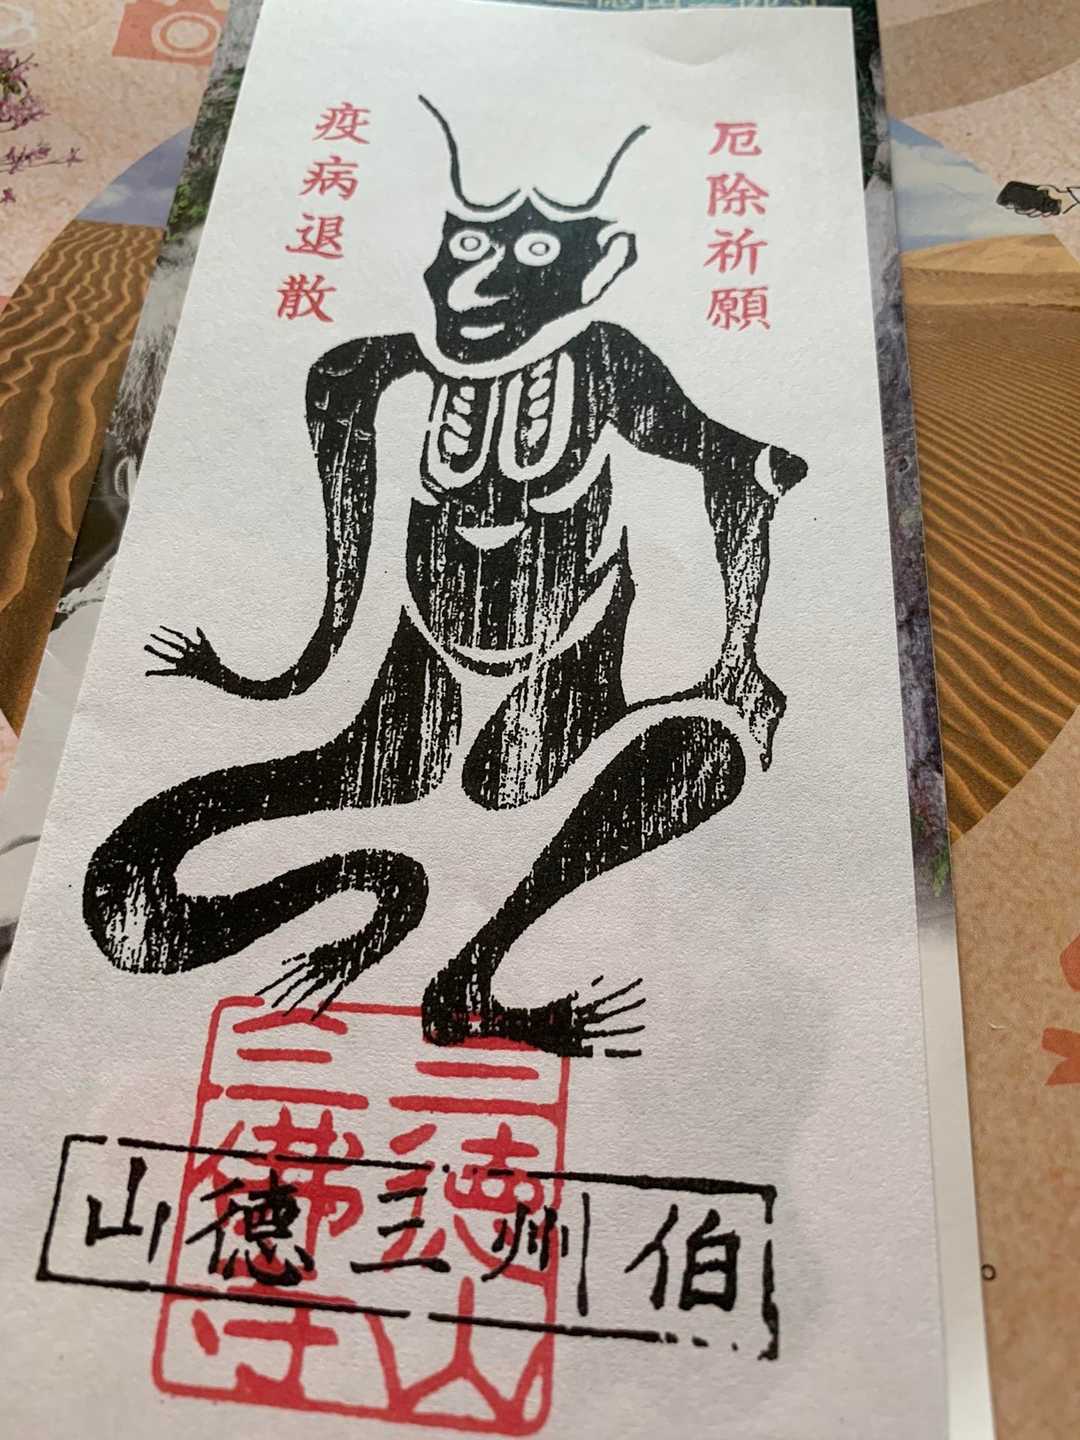 厄除祈願
疫病退散
伯州三徳山
三徳山
三佛寺